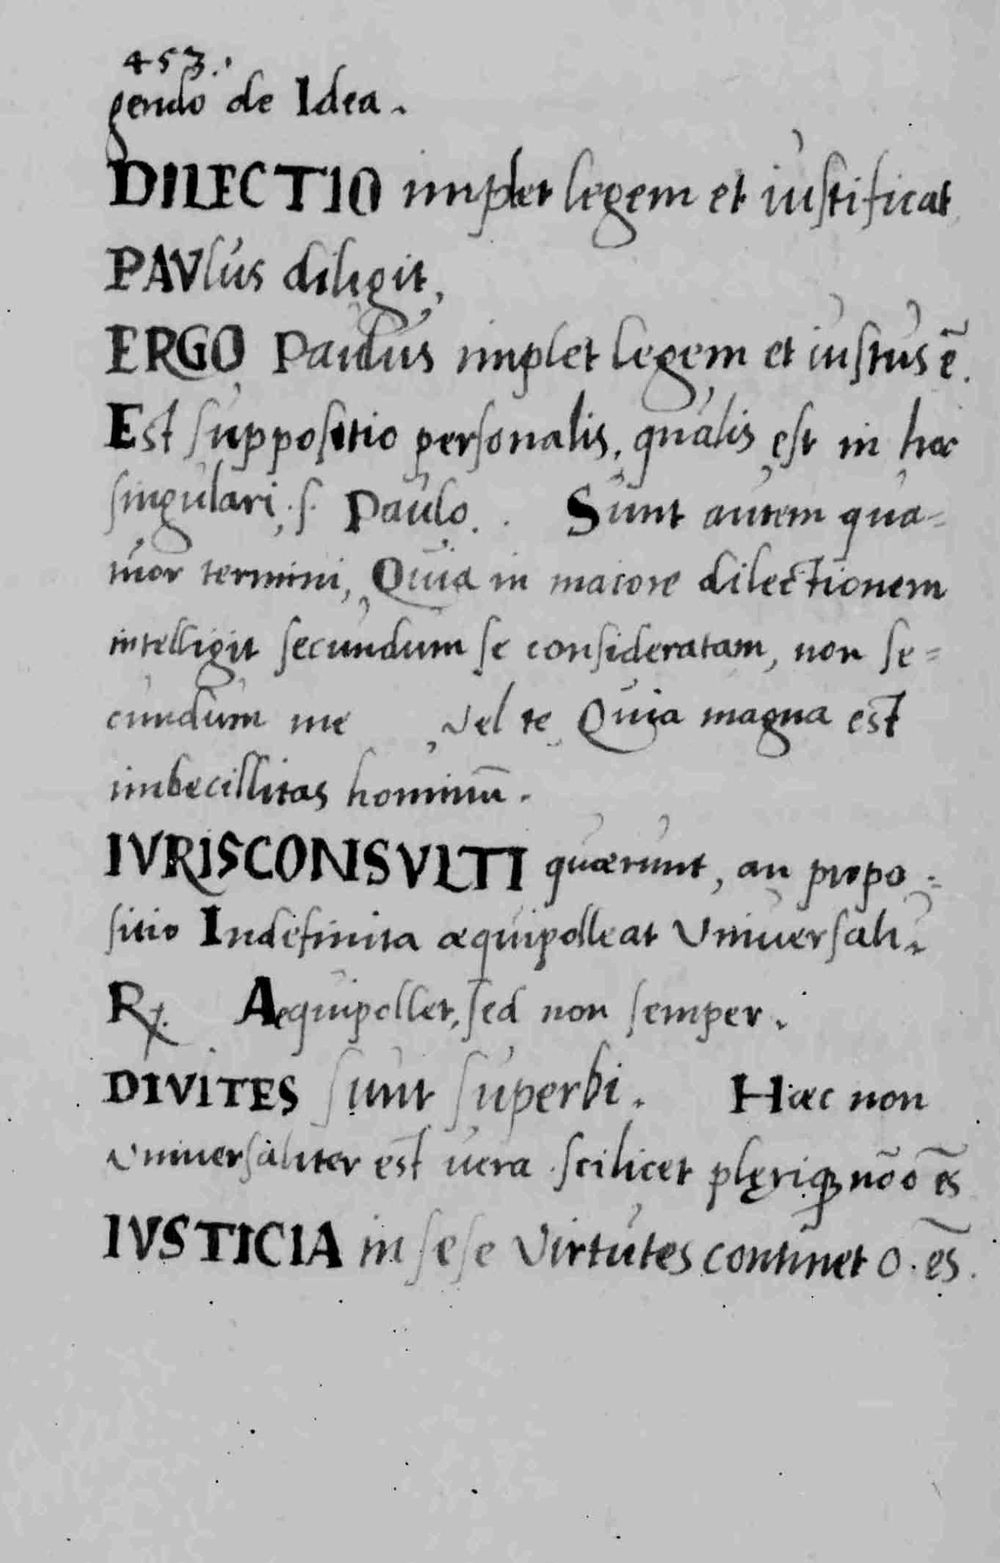 453.
gendo de Idea.
DILECTIO implet legem et iustificat
PAVlus diligit,
ERGO Paulus implet legem et iustus ē.
Est suppositio personalis, qualis est in hoc
singulari .s. Paulo. Sunt autem qua=
tuor termini, Quia in maiore dilectionem
intelligit secundum se consideratam, non se=
cundum me vel te Quia magna est
imbecillitas hominū.
IVRISCONSVLTI quærunt, an propo=
sitio Indefinita æquipolleat Vniversali.
R. Aequipollet, sed non semper.
DIVITES sunt superbi. Hæc non
Vniversaliter est vera .scilicet plęriq nō o ēs
IVSTICIA in sese Virtutes continet o. ēs.